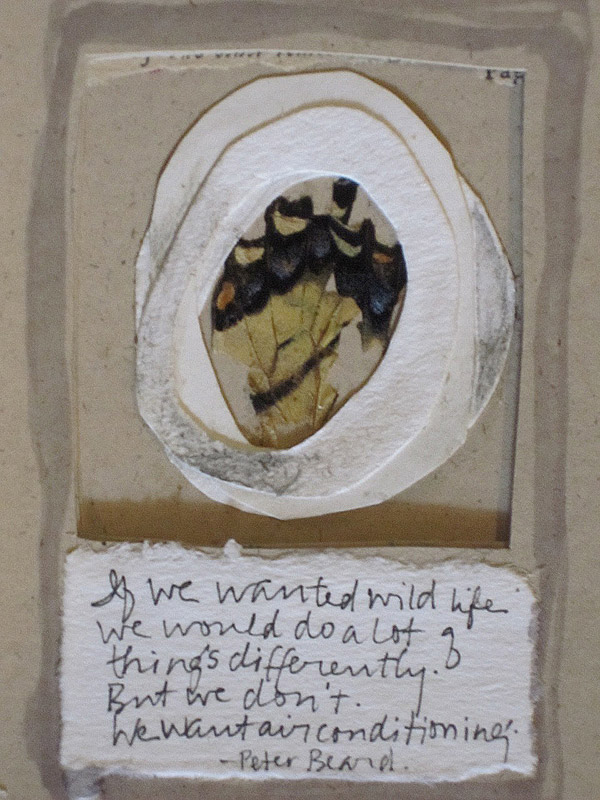 If we wanted wild life
we would do a lot of
things differently.
But we don't.
We want airconditioning.
-Peter Beard.